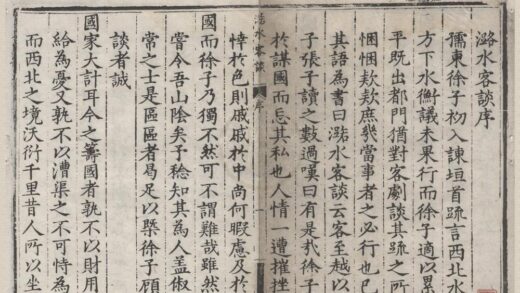 潞水客談序
孺東徐子初入諫垣首疏言西北水
方下水衡議未果行而徐子適以累
平既出都門猶對客劇談其疏之所
悃悃欵欵庶幾當事者之必行也已
其語為書曰潞水客談云客至越以
子張子讀之數過嘆曰有是㢤徐子
於謀國而忘其私也人情一遭摧挫
潞水客談 序 一
悻於色則戚戚於中尚何暇慮及於
國而徐子乃獨不然可不謂難哉雖然
嘗令吾山陰矣予稔知其為人蓋俶
常之士是區區者曷足以槩徐子顧
談者誠
國家大計耳今之籌國者孰不以財用
給為憂又孰不以漕渠之不可恃為
而西北之境沃衍千里昔人所以坐